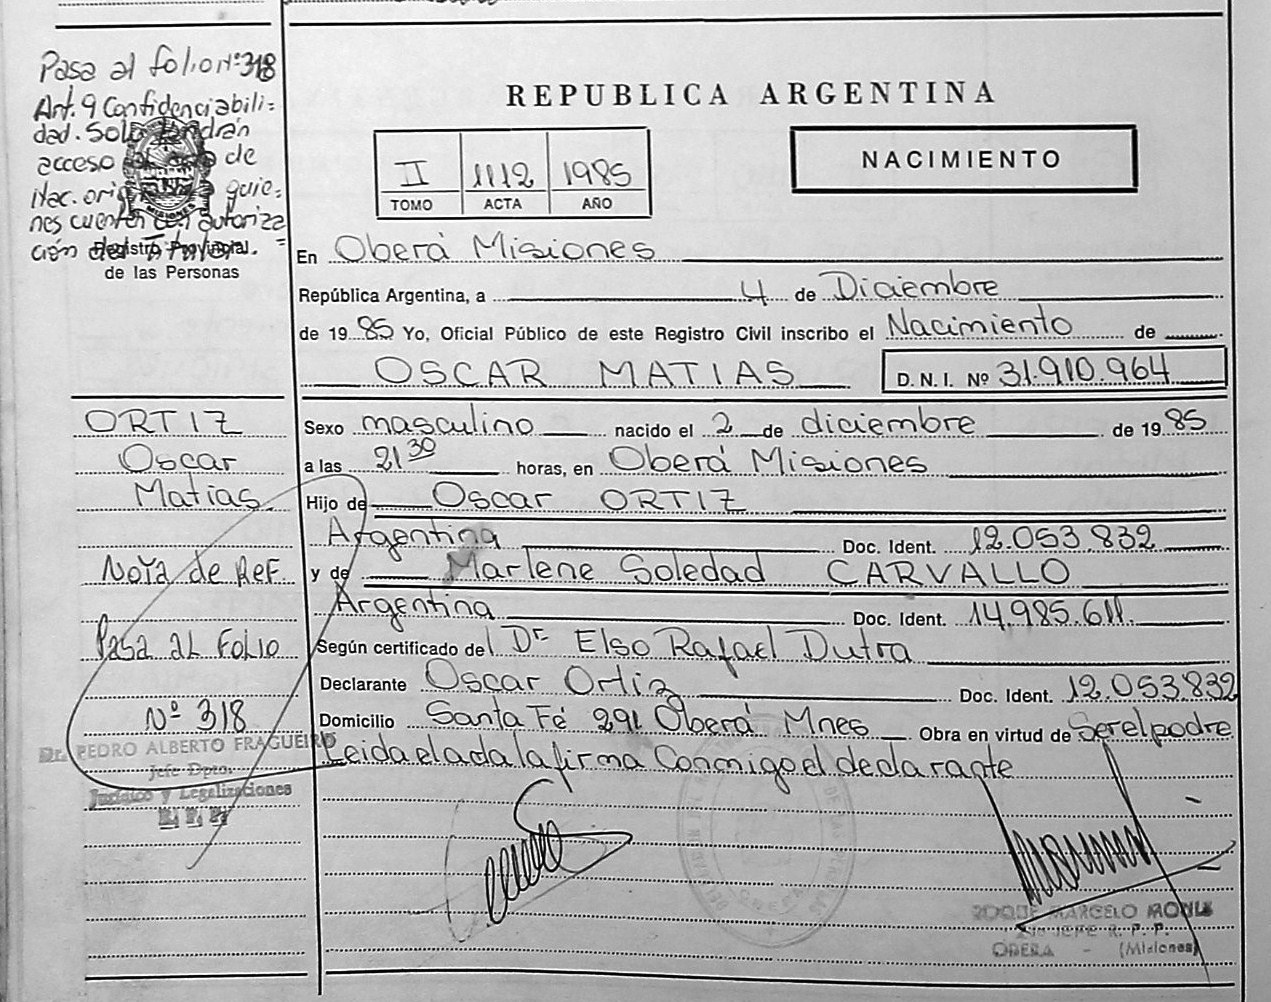 Pasa al folio Nº 318
Art. 9 Confidenciabili=
dad. Solo tendrán
acceso al acta de
Nac. orig quie=
nes cuenten con autoriza
ción del Titular.=
MISIONES
Registro Provincial
de las Personas
ORTIZ
Oscar
Matias.
Nota de Ref.
Pasa al Folio
Nº 318
Dr. PEDRO ALBERTO FRAGUEIRO
Jefe Dpto.
Jurídico y Legalizaciones
R. P. P.
REPUBLICA ARGENTINA
II 1112 1985
TOMO ACTA AÑO
NACIMIENTO
En Oberá Misiones
República Argentina, a 4 de Diciembre
de 19 85 Yo, Oficial Público de este Registro Civil inscribo el Nacimiento de
OSCAR MATIAS D.N.I. Nº 31.910.964
Sexo masculino nacido el 2 de diciembre de 19 85
a las 21 30 horas, en Oberá Misiones
Hijo de Oscar ORTIZ
Argentina Doc. Ident. 12.053.832
y de Marlene Soledad CARVALLO
Argentina Doc. Ident. 14.985.611.
Según certificado del Dr Elso Rafael Dutra
Declarante Oscar Ortiz Doc. Ident. 12.053.832
Domicilio Santa Fé 291 Oberá Mnes Obra en virtud de Ser el padre
Leida el acta la firma Conmigo el declarante
ROQUE MARCELO
JEFE R. P. P.
OBERA - (Misiones)